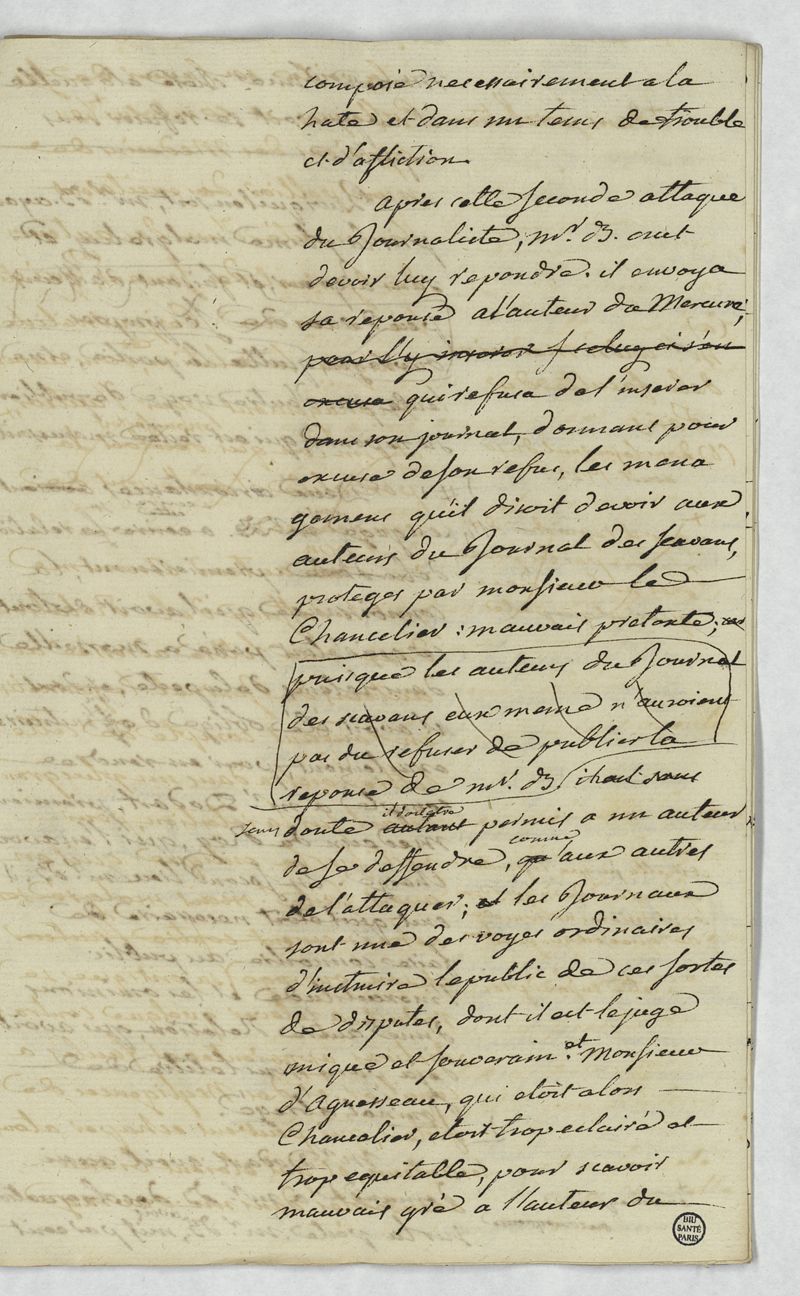 composé necessairement a la
hate et dans un tems de trouble
et d'affliction.
Apres cette seconde attaque
du Journaliste, mr. B. crut
devoir luy repondre. il envoya
sa reponse a l'auteur du Mercure,
pour l'y inserer celuy ci s'en
excusa qui refusa de l'inserer
dans son journal, donnant pour
excuse de son refus, les mena
gemens qu'il disoit devoir aux
auteurs du Journal des scavans,
proteges par monsieur le
Chancelier : mauvais pretexte;
puisque les auteurs du Journal
des scavans eux meme n'auroient
pas du refuser de publier la
reponse de mr. B. il est sans
sans doute il doit etre autant permis a un auteur
de se deffendre, comme qu'aux autres
de l'attaquer; et les Journaux
sont une des voyes ordinaires
d'instruire le public de ces sortes
de disputes, dont il est le juge
unique et souverain. et Monsieur
d'Aguesseau, qui etoit alors
Chancelier, etoit trop eclairé et
trop equitable, pour scavoir
mauvais gré a l'auteur du
BIU
SANTÉ
PARIS